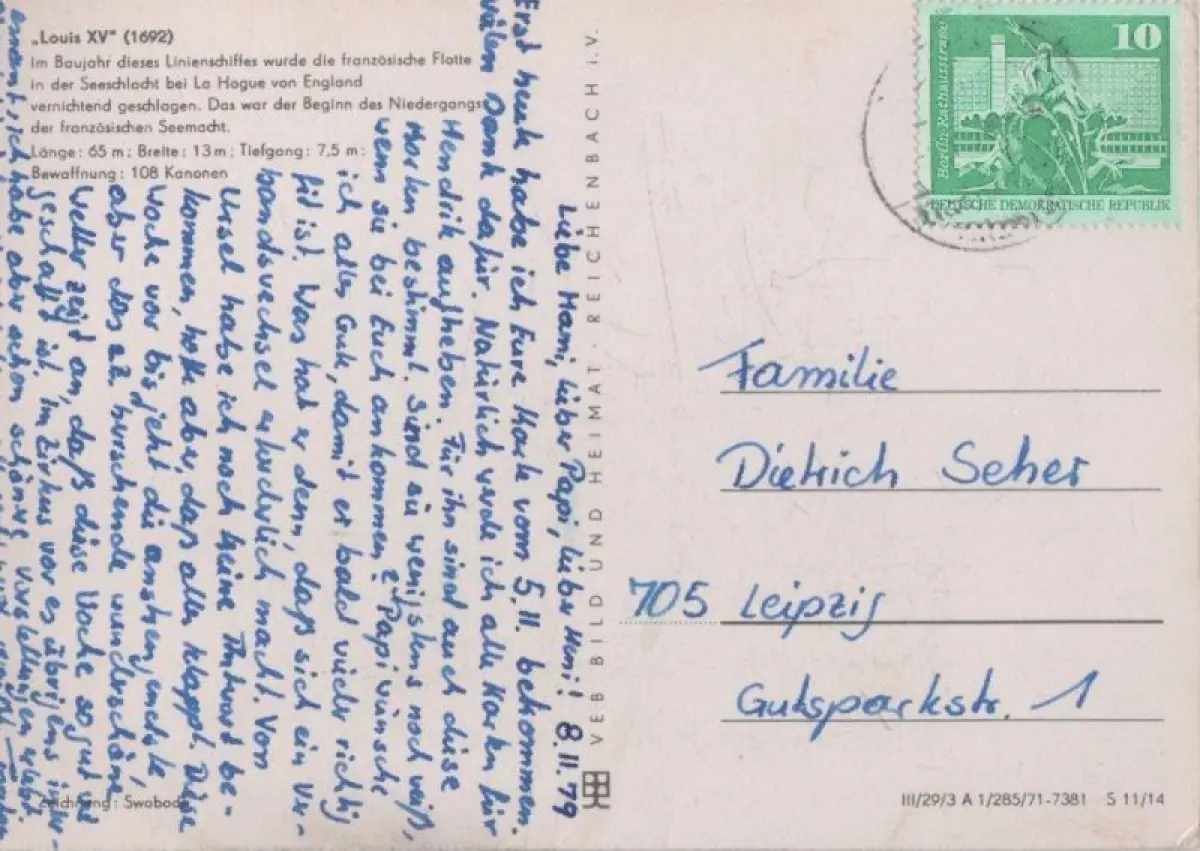 „Louis XV" (1692)
Im Baujahr dieses Linienschiffes wurde die französische Flotte
in der Seeschlacht bei La Hogue von England
vernichtend geschlagen. Das war der Beginn des Niedergangs
der französischen Seemacht.
Länge: 65 m; Breite: 13 m; Tiefgang: 7,5 m;
Bewaffnung: 108 Kanonen
Liebe Mami, lieber Papi, lieber Heni! 8.11.79
Erst heute habe ich Eure Karte vom 5.11. bekommen.
Vielen Dank dafür. Natürlich werde ich alle Karten für
Hendrik aufheben. Für ihn sind auch diese
Karten bestimmt. Sind sie wenigstens noch weiß,
wenn sie bei Euch ankommen? Papi wünsche
ich alles Gute, damit er bald wieder richtig
fit ist. Was hat er denn, daß sich ein Ver-
bandswechsel erforderlich macht. Vom
Ursel habe ich noch keine Antwort be-
kommen, hoffe aber, daß alles klappt. Diese
Woche war bis jetzt die anstrengendste,
aber das wunderschöne
Wetter zeigt an, daß diese Woche so gut wie
geschafft ist. Im Zirkus war es übrigens
ich habe aber schon schönere Vorstellungen erlebt.
Zeichnung: Swoboda
VEB BILD UND HEIMAT · REICHENBACH I. V.
10
Berlin, Rathausstraße
DEUTSCHE DEMOKRATISCHE REPUBLIK
Familie
Dietrich Seher
705 Leipzig
Gutsparkstr. 1
III/29/3 A 1/285/71-7381 S 11/14